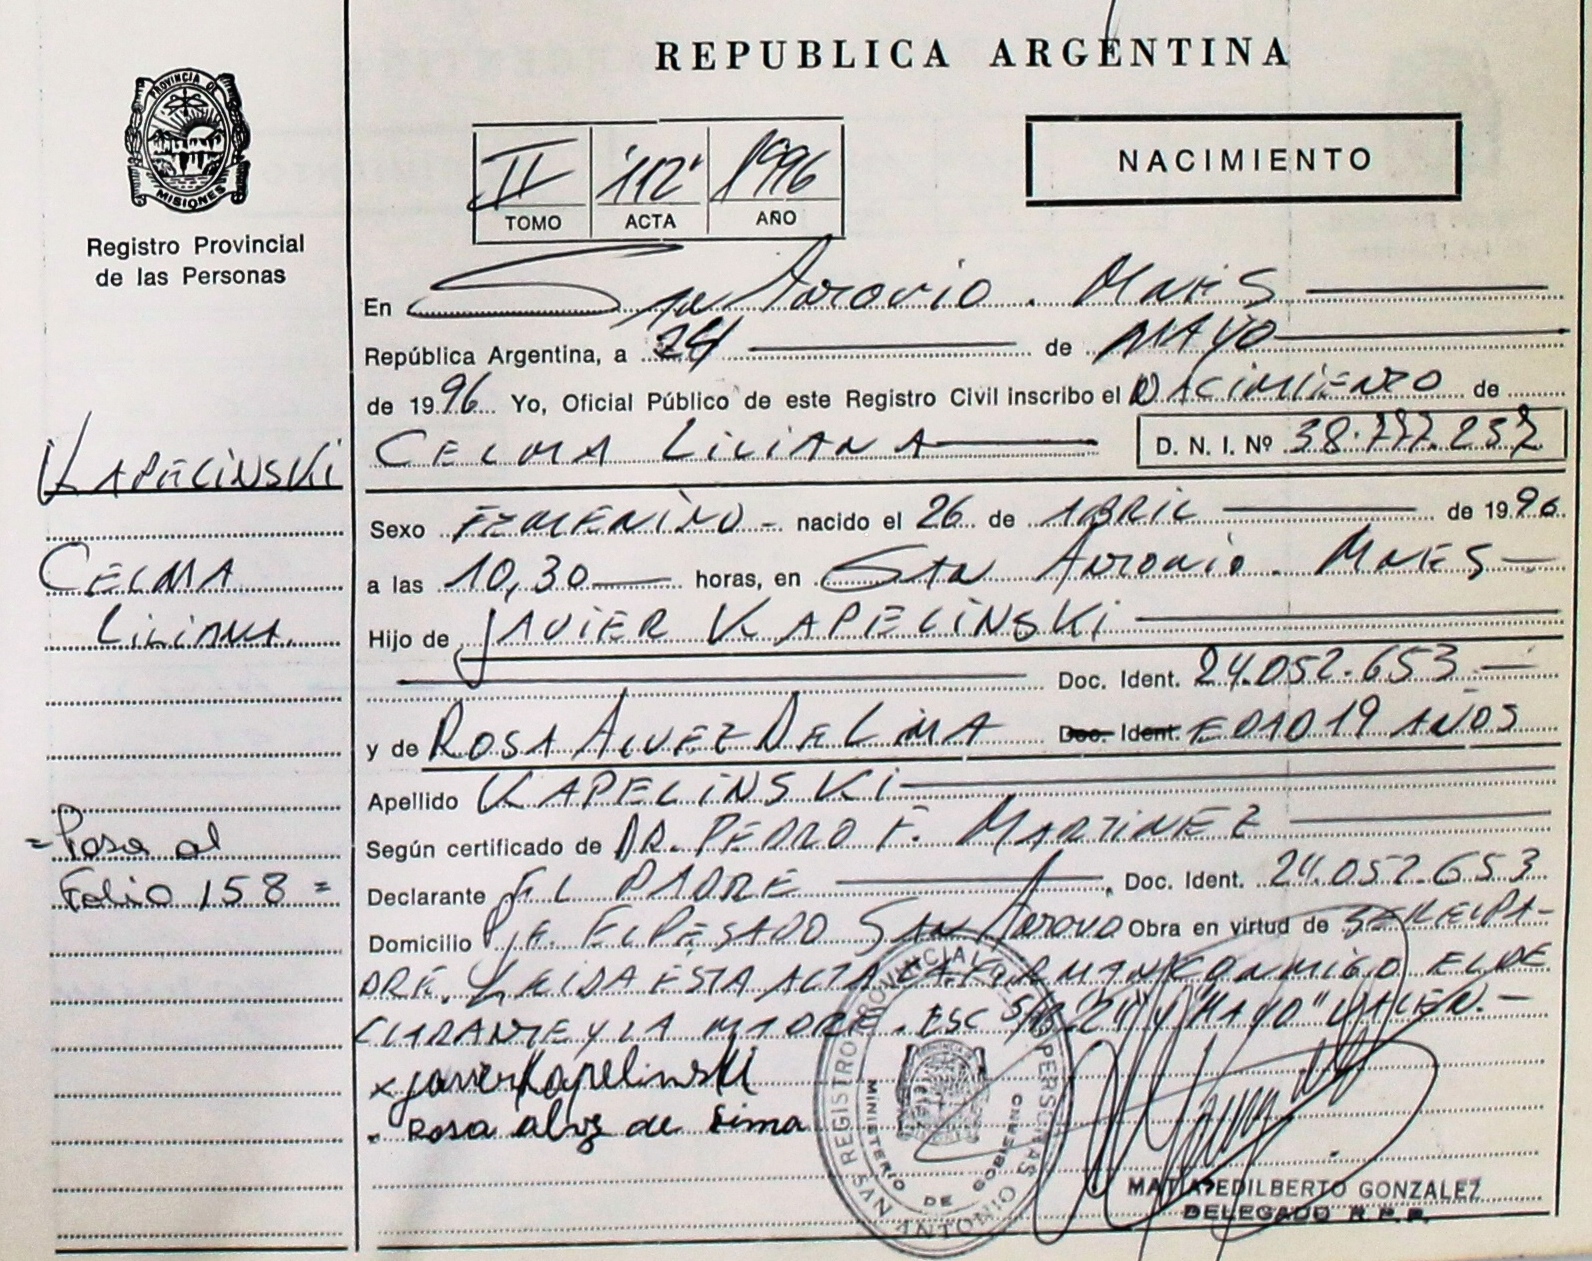 REPUBLICA ARGENTINA
PROVINCIA DE
MISIONES
Registro Provincial
de las Personas
II 112 1996
TOMO ACTA AÑO
NACIMIENTO
En San Antonio. Mnes
República Argentina, a 24 de MAYO
de 1996 Yo, Oficial Público de este Registro Civil inscribo el NACIMIENTO de
CELMA LILIANA D. N. I. Nº 38.777.257
KAPELINSKI
CELMA
LILIANA.
Sexo FEMENINO - nacido el 26 de ABRIL de 1996
a las 10,30 horas, en SAN ANTONIO. MNES
Hijo de JAVIER KAPELINSKI
Doc. Ident. 24.052.653
y de ROSA ALVEZ DE LIMA Doc. Ident. EDAD 19 AÑOS
Apellido KAPELINSKI
Según certificado de DR. PEDRO F. MARTINEZ
= Pasa al
Folio 158 =
Declarante EL PADRE Doc. Ident. 24.052.653
Domicilio PJE. EL PESADO SAN Obra en virtud de SER EL PA-
DRE. LEIDA ESTA ACTA LA FIRMAN CONMIGO EL DE
CLARANTE Y LA MADRE. ESC S/R "24" Y "MAYO" VALEN.-
x javier Kapelinski
. Rosa alvz de Lima
REGISTRO PROVINCIAL PERSONAS
MINISTERIO DE GOBIERNO
SAN ANTONIO
MATIAS EDILBERTO GONZALEZ
DELEGADO R.P.P.